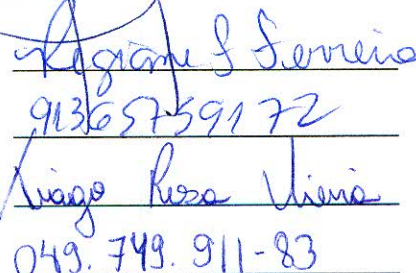 Regiane S Ferreira
91365759172
Tiago Rosa Vieira
049.749.911-83